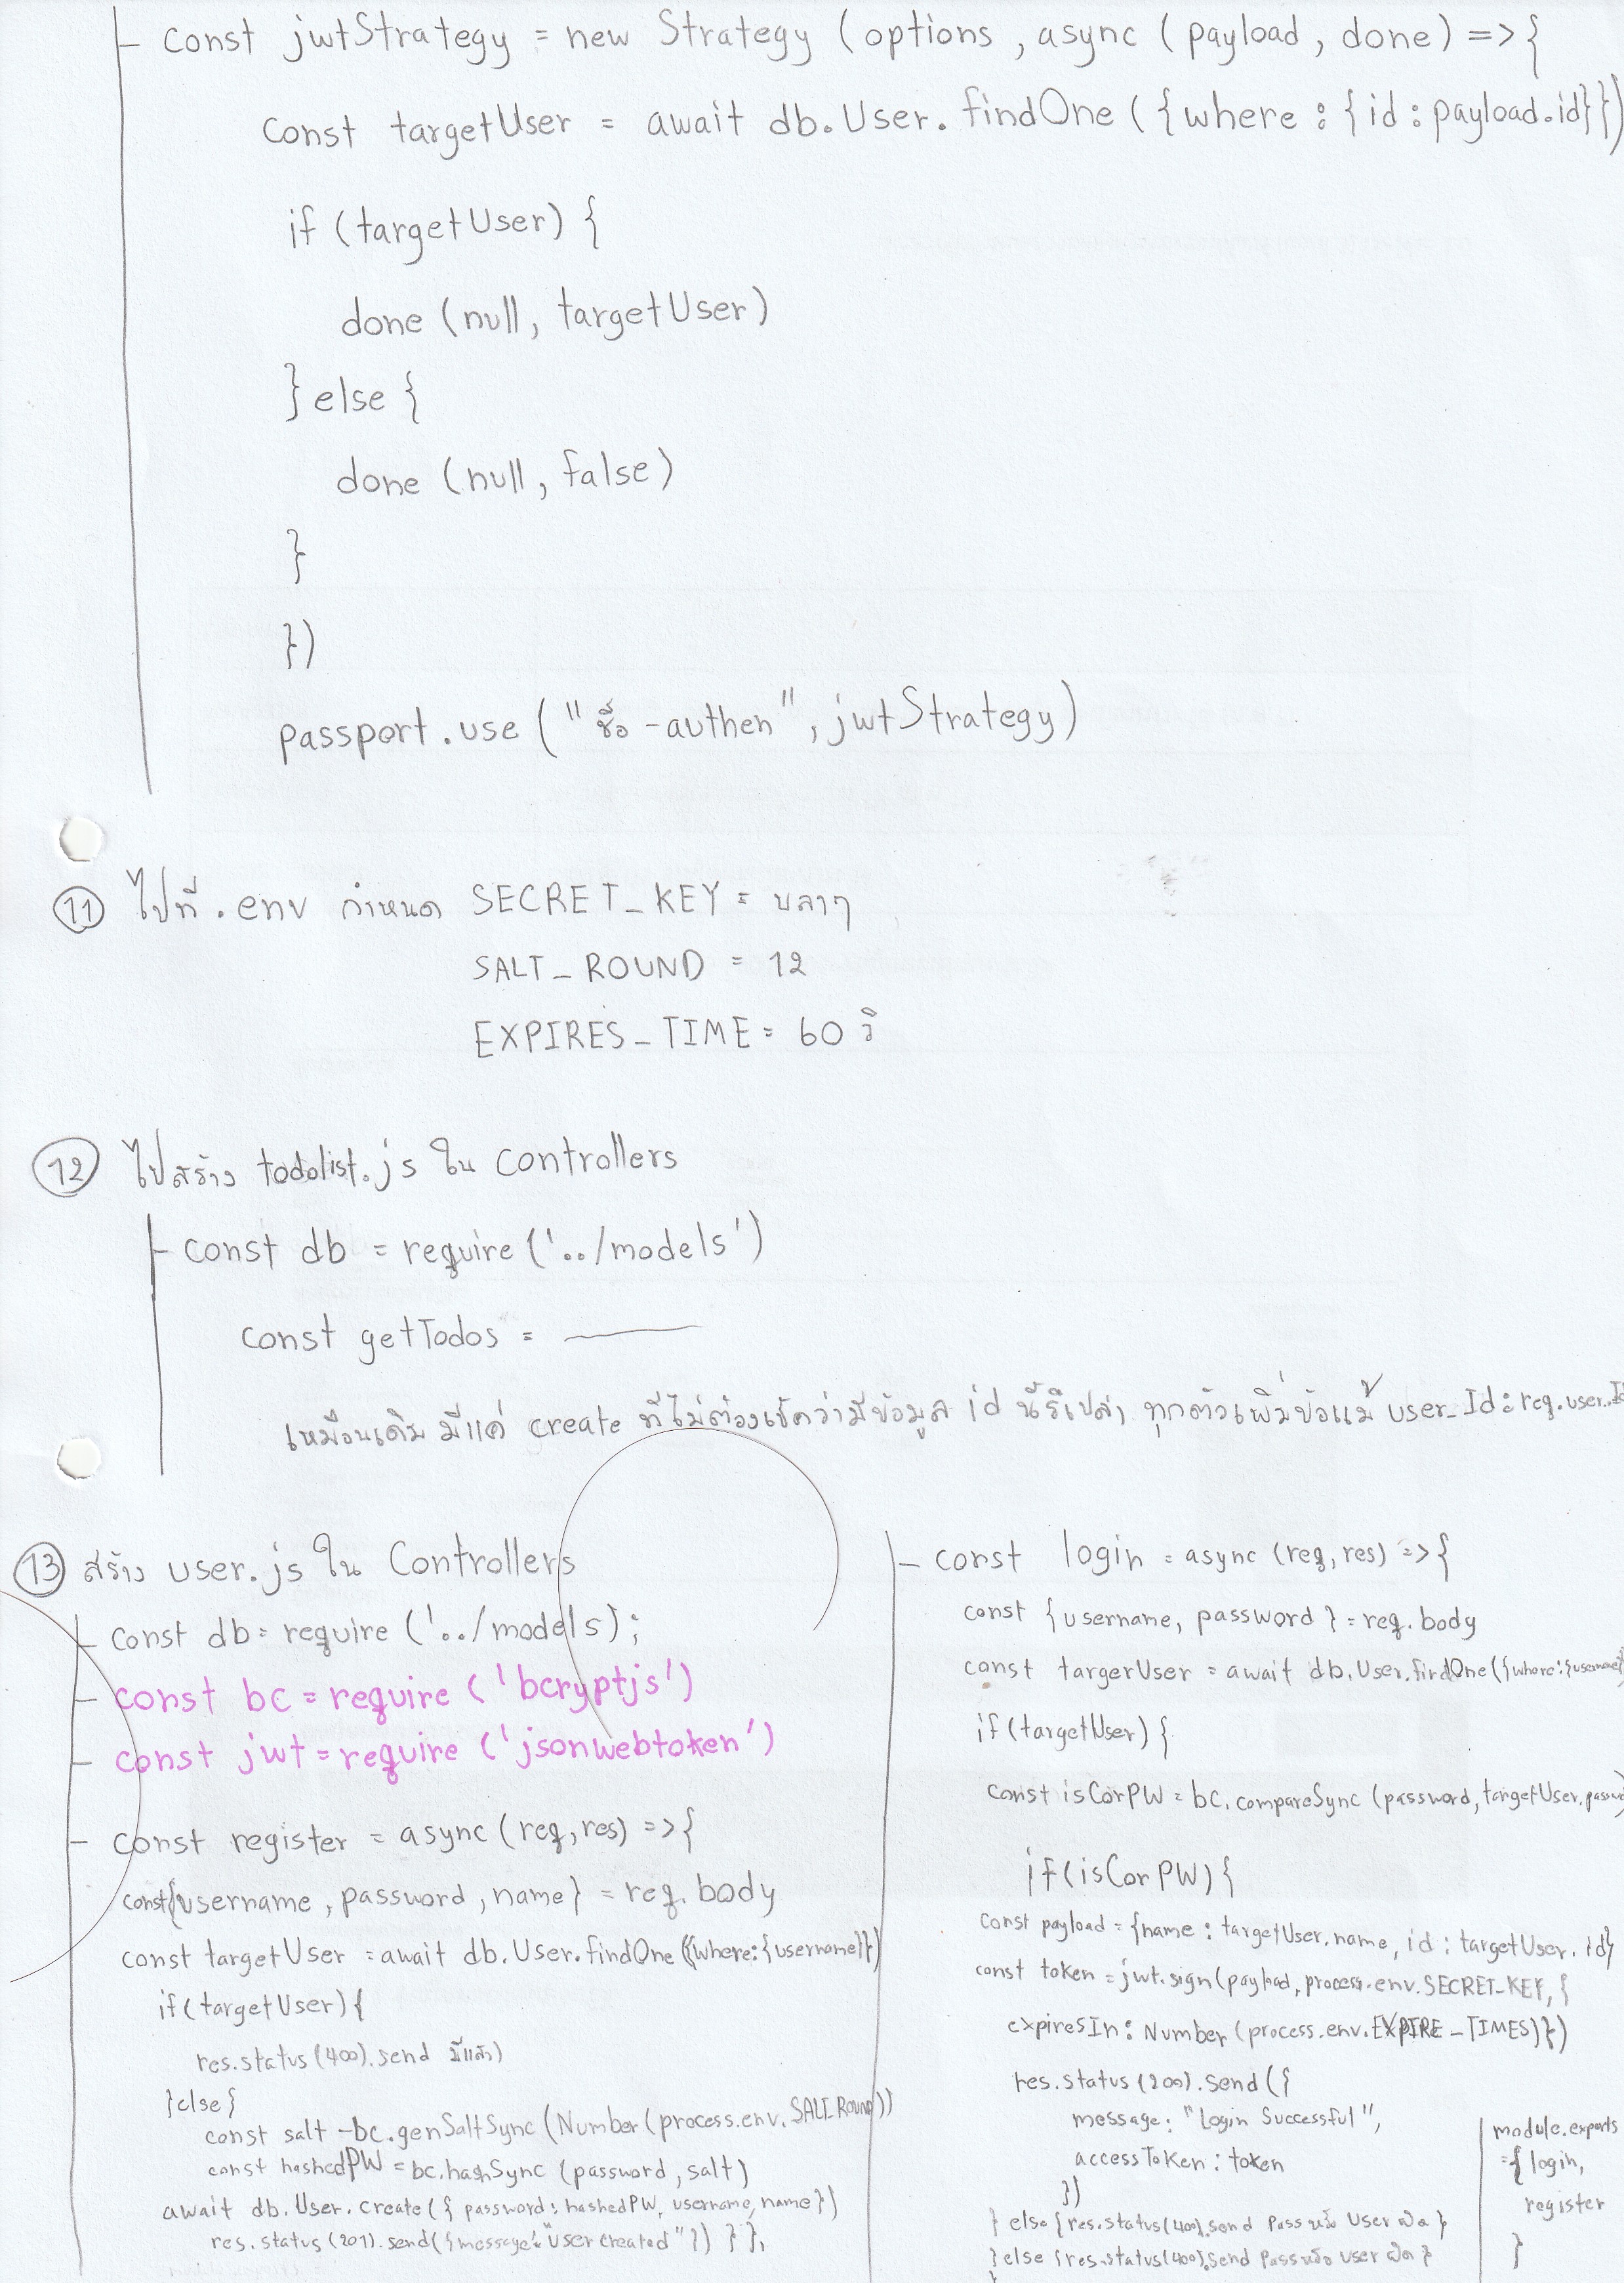 const jwtStrategy = new Strategy (options , async ( payload , done ) => {
const targetUser = await db.User.findOne ( { where : { id : payload.id}})
if (targetUser) {
done (null, targetUser)
} else {
done (null, false)
}
})
passport.use ( "ชื่อ -authen" , jwtStrategy)
11 ไปที่ .env กำหนด SECRET_KEY = บลาๆ
SALT_ROUND = 12
EXPIRES_TIME = 60 วิ
12 ไปสร้าง todolist.js ใน controllers
const db = require ('../models')
const getTodos =
เหมือนเดิม มีแค่ create ที่ไม่ต้องเช็คว่ามีข้อมูล id นี้รึเปล่า ทุกตัวเพิ่ม user_Id : req.user.Id
13 สร้าง user.js ใน Controllers
const db = require ('../models);
const bc = require ('bcryptjs')
const jwt = require ('jsonwebtoken')
const register = async (req,res) => {
const{username , password , name} = req.body
const targetUser = await db.User.findOne ({where:{username}})
if (targetUser) {
res.status (400).send มีแล้ว)
}else{
const salt -bc.genSaltSync (Number (process.env.SALT_ROUND))
const hashedPW = bc.hashSync (password , salt)
await db.User.create ( { password : hashedPW, username, name})
res.status (201).send( {message: "User created" }) } };
const login = async (req, res) => {
const {username, password } = req.body
const targerUser = await db.User.findOne ({where:{username}
if (targetUser) {
const isCorPW = bc.compareSync (password, targetUser.password)
if (isCorPW) {
const payload = {name : targetUser.name, id : targetUser.id}
const token = jwt.sign(payload, process.env.SECRET_KEY, {
expiresIn : Number (process.env.EXPIRE_TIMES)})
res.status (200).send ({
message: "Login Successful",
accessToken : token
})
} else {res.status(400).send Pass หรือ User ผิด }
}else {res.status(400).send Pass หรือ User ผิด }
}
module.exports
= { login,
register
}